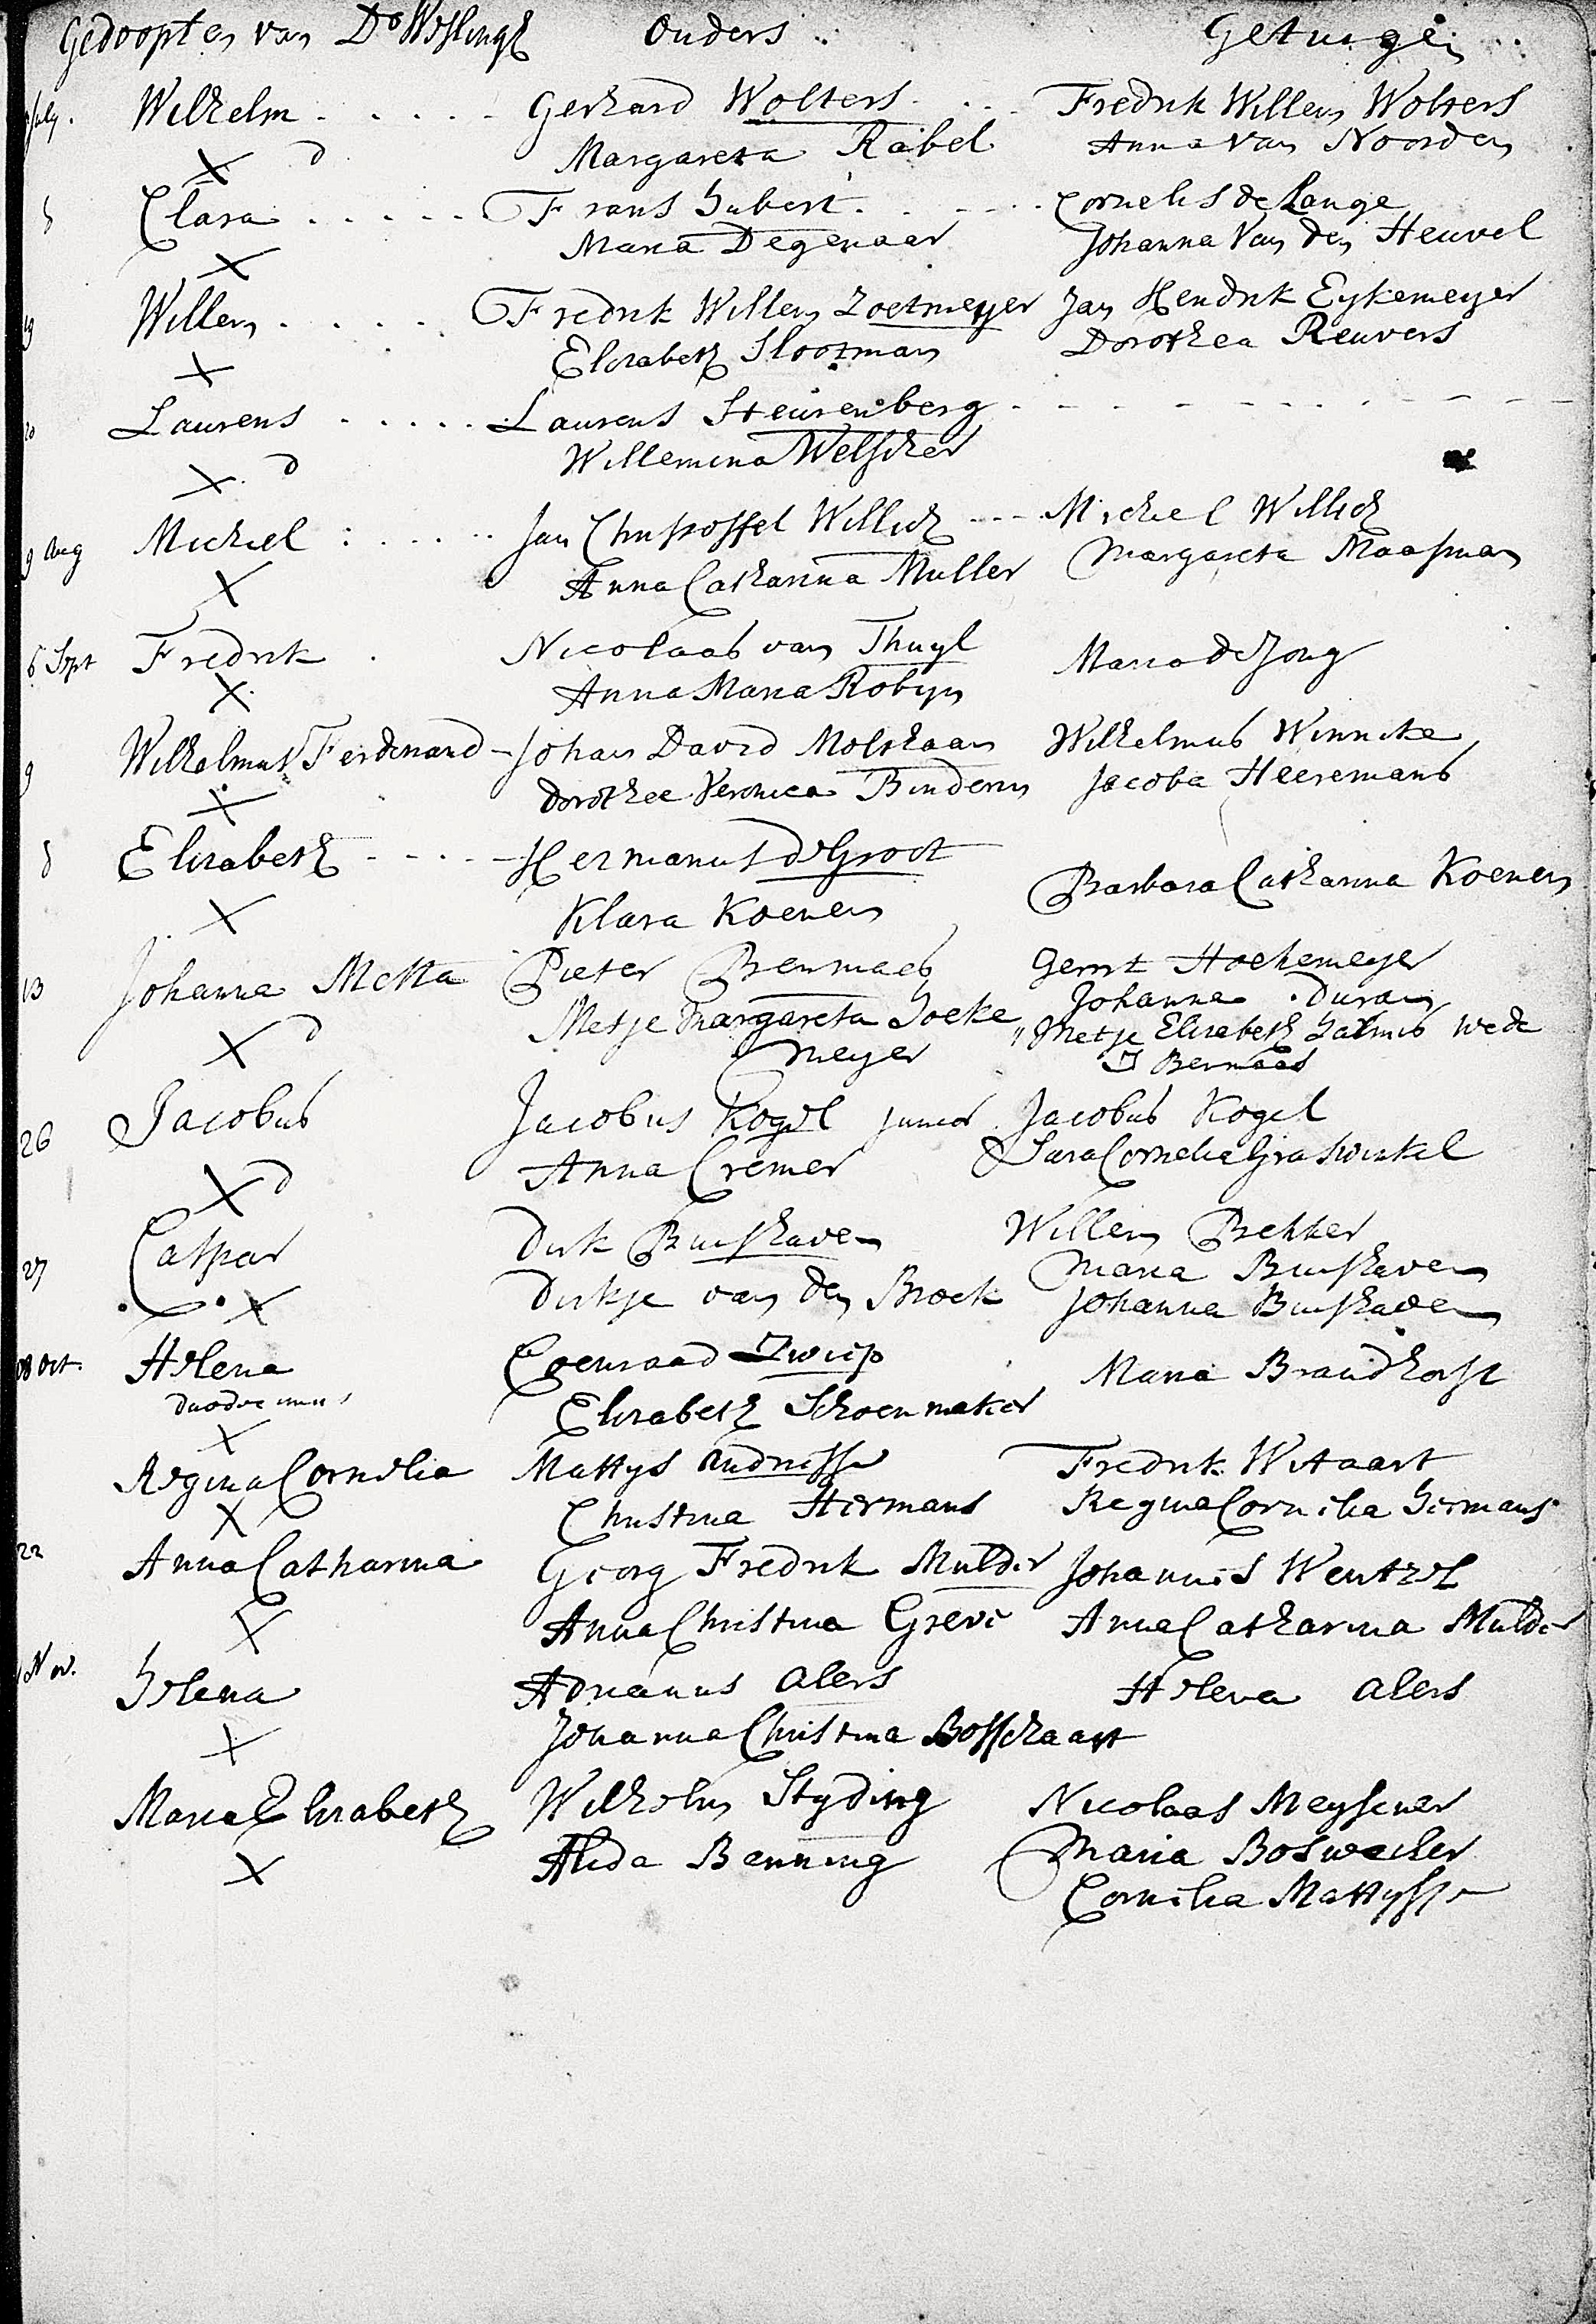 Gedoopten van Do Ouders Getuigen
July. Wilhelm Gerhard Wolters Fredrik Willem Wolters
X d Margareta Rabel Anna Van Noorden
Clara Frans Hubert Cornelis de Lange
X Maria Degenaar Johanna Van den Heuvel
19 Willem Fredrik Willem Zoetmeyer Jan Hendrik Eykemeyer
X Elisabeth Slootman Dorothea Reuvers
20 Laurens Laurens Steurenberg
X d Willemina Welscher
9 Aug Michiel Jan Christoffel Willich Michiel Willich
X Anna Catharina Muller Margareta Maasman
6 Sept Fredrik Nicolaas van Thuyl Maria de Jong
X Anna Maria Robyn
9 Wilhelmus Ferdinand Johan David Molthaan Wilhelmus Winncke
X Dorothee Veronica Jacoba Heeremans
Elisabeth Hermanus de Groot Barbara Catharina Koenen
X Klara Koenen
13 Johanna Metta Pieter Gerrit Hoekemeyer
Johanna
X d Metje Margareta Hoeke Metje Elisabeth Wede
meyer Bermaas
26 Jacobus Jacobus Kogel junior Jacobus Kogel
X d Anna Cremer Sara Cornelia Graswinkel
27 Caspar Dirk Buishaven Willem Bekker
Maria Buishaven
X Dirkje van den Broek Johanna Buishaven
Oct. Helena Coenraad Zwiep Maria Brandhorst
Elisabeth Schoenmaker
X
Regina Cornelia Mattys Andriesse Fredrik Witaart
X Christina Hermans Regina Cornelia Hermans
22 Anna Catharina Georg Fredrik Mulder Johannes Wentzel
X Anna Christina Greve Anna Catharina Mulder
Nov. Helena Adrianus Alers Helena Alers
X Johanna Christina Bosschaart
Maria Elisabeth Wilhelm Styding Nicolaas Meyscner
X Alida Benning Maria Boswecher
Cornelia Mattysse